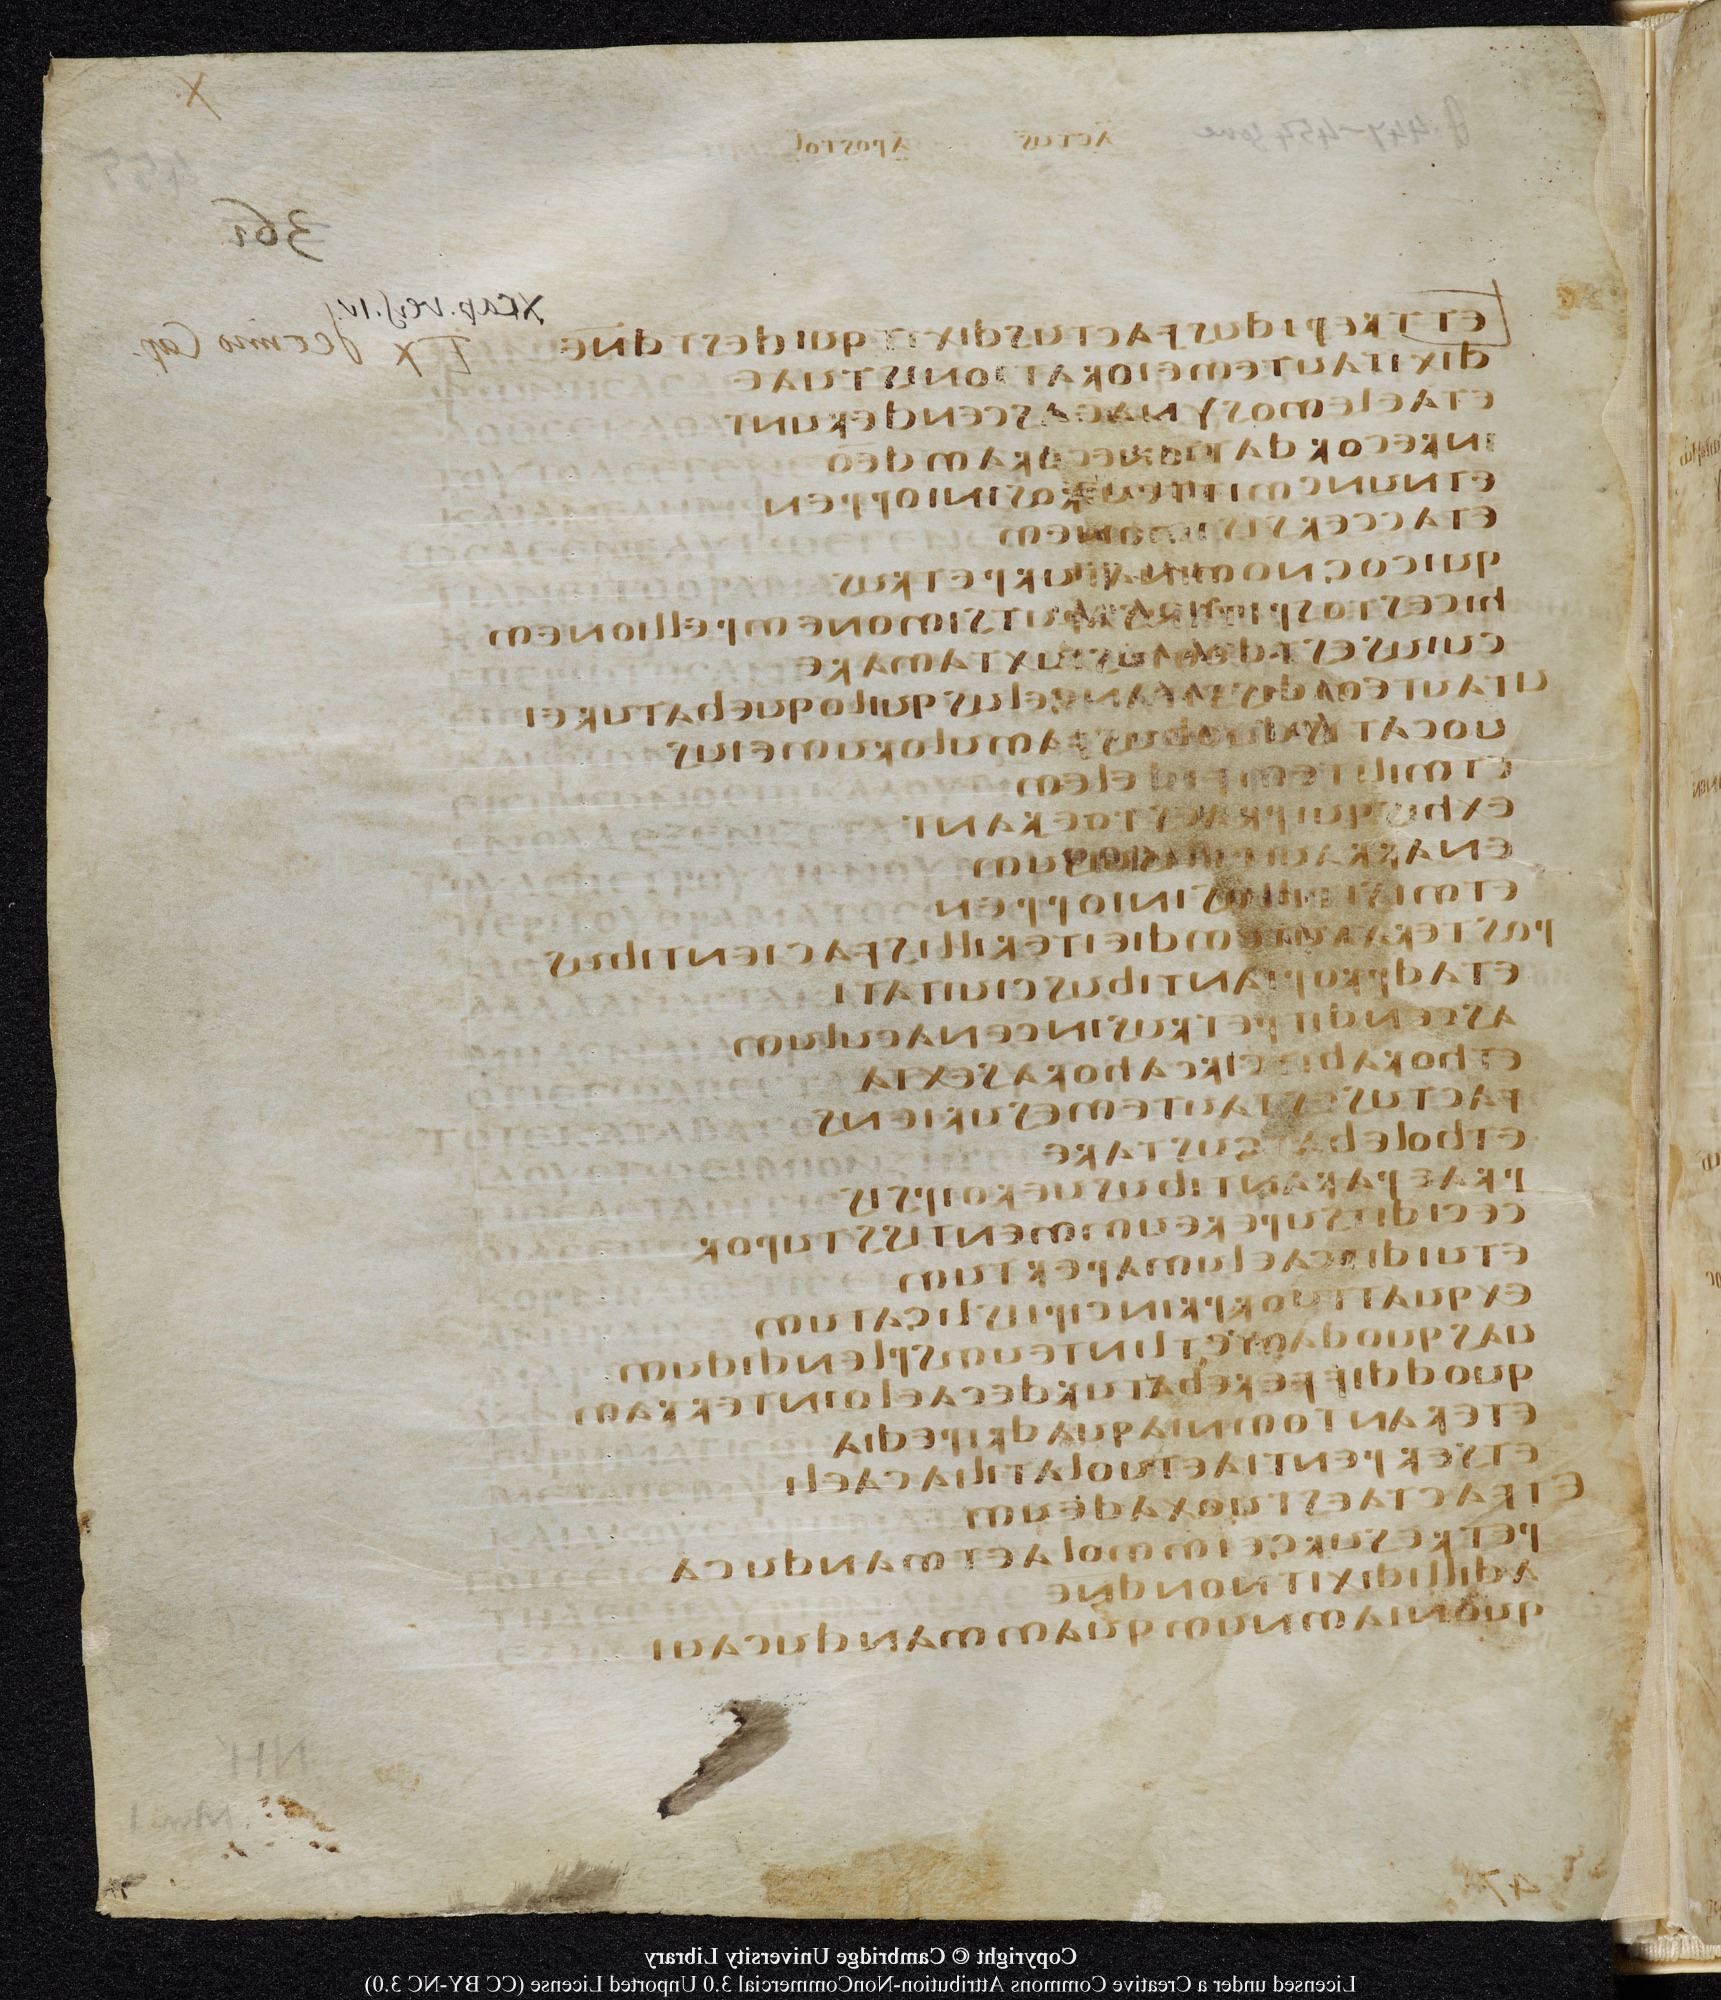 ACTUS APOSTOL
455
361
Xcap. vers. IV.
IX decimo Cap.
ETTREPIDUSFACTUSDIXIT QUIDEST DN̄E
DIXITAUTEMEIORATIONISTUAE
ETAELEMOSYNAEASCENDERUNT
INRECORDATIONECORAMDEO
ETNUNCMITTEUIROSINIOPPEN
ETACCERSISIMONEM
QUICOGNOMINATURPETRUS
HICEST APUTSIMONEMPELLIONEM
CUIUSESTDOMUSIUXTAMARE
UTAUTEMDISCESSITANGELUSQUILOQUEBATUREI
UOCATISDUOBUSFAMULORUMEIUS
ETMILITEMFIDELEM
EXHISQUIPRAESTOERANT
ENARRAUITILLISUISUM
ETMISITILLOSINIOPPEN
POSTERAAUTEMDIEITERILLISFACIENTIBUS
ETADPROPIANTIBUSCIUITATI
ASCENDITPETRUSINCENACULUM
ETHORABITCIRCAHORASEXTA
FACTUSESTAUTEMESURIENS
ETBOLEBATGUSTARE
PRAEPARANTIBUSUEROIPSIS
CECIDITSUPEREUMMENTISSTUPOR
ETUIDITCAELUMAPERTUM
EXQUATTUORPRINCIPIISLIGATUM
UASQUODDAMETLINTEUMSPLENDIDUM
QUODDIFFEREBATURDECAELOINTERRAM
ETERANTOMNIAQUADRIPEDIA
ETSERPENTIAETUOLATILIACAELI
ETFACTAESTUOXADEUM
PETRESURGEIMMOLAETMANDUCA
ADILLIDIXITNONDN̄E
QUONIAMNUMQUAMMANDUCAUI
Copyright © Cambridge University Library
Licensed under a Creative Commons Attribution-NonCommercial 3.0 Unported License (CC BY-NC 3.0)